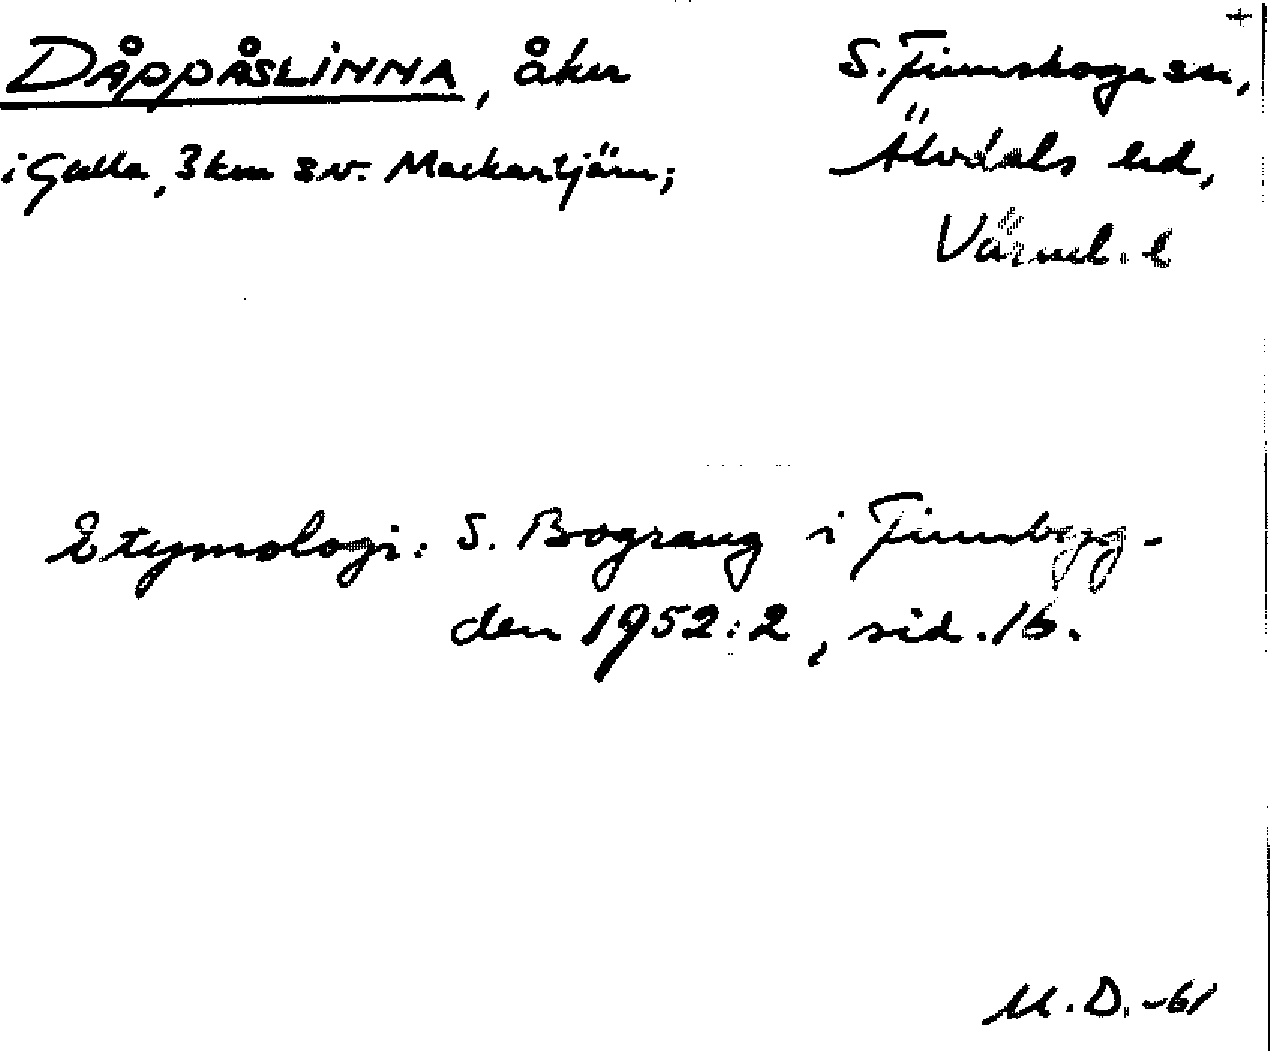 DÅPPÅSLINNA, åker
i Gulla, 3 km sv. Mackartjärn;
S. Finnskoga sn,
Älvdals hd,
Värml. l
Etymologi: S. Bograng i Finnbyg-
den 1952:2, sid. 16.
M.D. -61